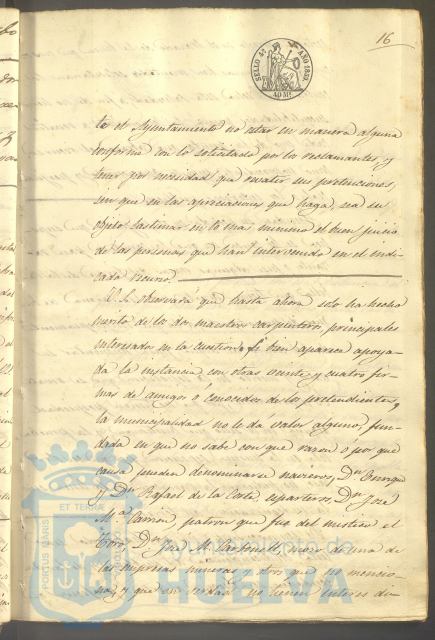 16
SELLO 4º AÑO 1859.
40 Ms.
te el Ayuntamiento no estar en manera alguna
conforme con lo solicitado por los reclamantes, y
tener por necesidad que rebatir sus pretenciones,
sin que en las apreciaciones que haga, sea su
objeto lastimar en lo mas minimo el buen juicio
de las personas que han intervenido en el indi-
cado
V. S. observará que hasta ahora solo ha hecho
merito de los dos maestros carpinteros, principales
interesados en la cuestion. Si bien aparece apoya-
da la instancia con otras veinte y cuatro fir-
mas de amigos ó conocidos de los pretendientes, y
la municipalidad no le da valor alguno, fun-
dada en que no sabe con que razon ó por que
causa pueden denominarse navieros, Dn. Enrique
y Dn. Rafael de la Corte, esparteros, Dn. José
Ma. Carrion, patron que fue del mistico el
Toro Dn. José M. Carbonell, de una de
las empresas mineras y otros que no mencio-
na, y que en verdad no tienen interes di-
ET TERRÆ
PORTUS MARIS
Ayuntamiento de
HUELVA